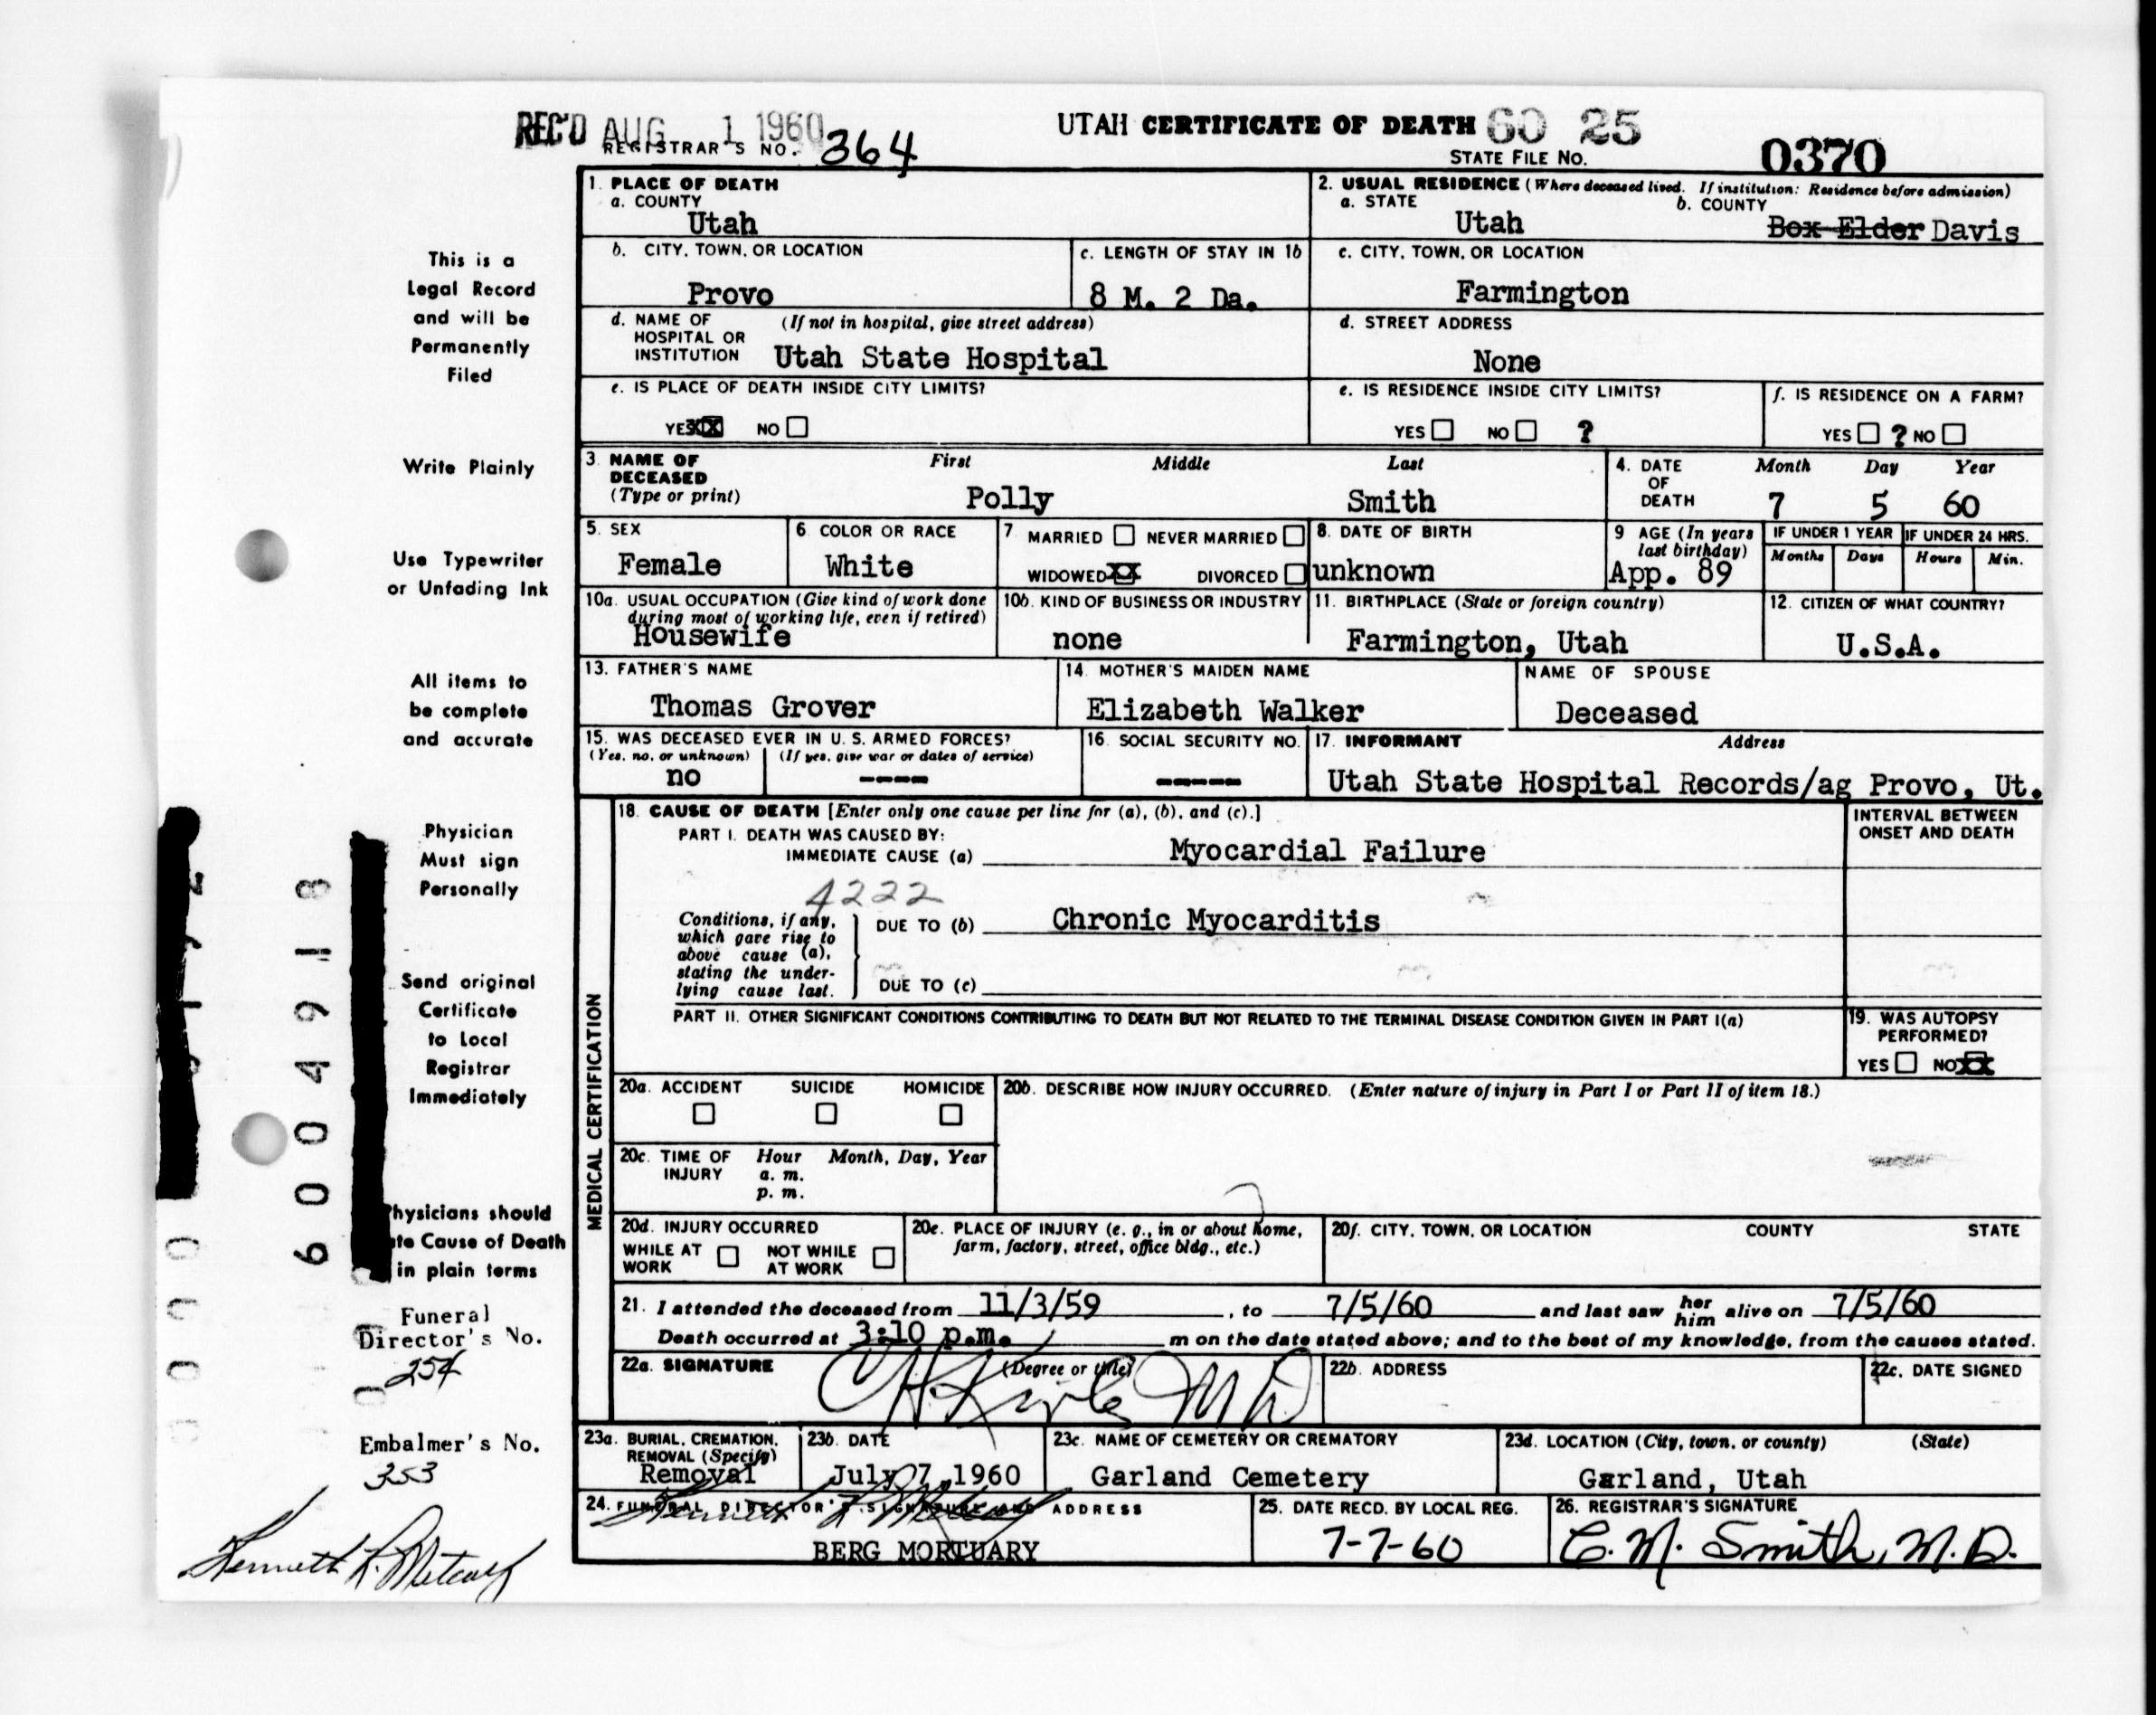 REC'D AUG 1 1960
REGISTRAR'S NO. 364
UTAH CERTIFICATE OF DEATH 60 25
STATE FILE NO. 0370
This is a
Legal Record
and will be
Permanently
Filed
Write Plainly
Use Typewriter
or Unfading Ink
All items to
be complete
and accurate
Physician
Must sign
Personally
Send original
Certificate
to Local
Registrar
Immediately
hysicians should
te Cause of Death
in plain terms
Funeral
Director's No.
254
Embalmer's No.
353
Kenneth L. Metcalf
6004918
1. PLACE OF DEATH
a. COUNTY
Utah
2. USUAL RESIDENCE (Where deceased lived. If institution: Residence before admission)
a. STATE
Utah
b. COUNTY
Box Elder Davis
b. CITY, TOWN, OR LOCATION
Provo
c. LENGTH OF STAY IN 1b
8 M. 2 Da.
c. CITY, TOWN, OR LOCATION
Farmington
d. NAME OF HOSPITAL OR INSTITUTION (If not in hospital, give street address)
Utah State Hospital
d. STREET ADDRESS
None
e. IS PLACE OF DEATH INSIDE CITY LIMITS?
YES XX NO
e. IS RESIDENCE INSIDE CITY LIMITS?
YES NO ?
f. IS RESIDENCE ON A FARM?
YES ? NO
3. NAME OF DECEASED (Type or print)
First Middle Last
Polly Smith
4. DATE OF DEATH
Month Day Year
7 5 60
5. SEX
Female
6 COLOR OR RACE
White
7 MARRIED NEVER MARRIED
WIDOWED XX DIVORCED
8. DATE OF BIRTH
unknown
9 AGE (In years last birthday)
App. 89
IF UNDER 1 YEAR IF UNDER 24 HRS.
Months Days Hours Min.
10a. USUAL OCCUPATION (Give kind of work done during most of working life, even if retired)
Housewife
10b. KIND OF BUSINESS OR INDUSTRY
none
11. BIRTHPLACE (State or foreign country)
Farmington, Utah
12. CITIZEN OF WHAT COUNTRY?
U.S.A.
13. FATHER'S NAME
Thomas Grover
14. MOTHER'S MAIDEN NAME
Elizabeth Walker
NAME OF SPOUSE
Deceased
15. WAS DECEASED EVER IN U. S. ARMED FORCES?
(Yes, no, or unknown) (If yes, give war or dates of service)
no ----
16. SOCIAL SECURITY NO.
-----
17. INFORMANT Address
Utah State Hospital Records/ag Provo, Ut.
MEDICAL CERTIFICATION
18. CAUSE OF DEATH [Enter only one cause per line for (a), (b), and (c).]
INTERVAL BETWEEN ONSET AND DEATH
PART I. DEATH WAS CAUSED BY:
IMMEDIATE CAUSE (a) Myocardial Failure
4222
Conditions, if any, which gave rise to above cause (a), stating the underlying cause last.
DUE TO (b) Chronic Myocarditis
DUE TO (c)
PART II. OTHER SIGNIFICANT CONDITIONS CONTRIBUTING TO DEATH BUT NOT RELATED TO THE TERMINAL DISEASE CONDITION GIVEN IN PART I(a)
19. WAS AUTOPSY PERFORMED?
YES NO XX
20a. ACCIDENT SUICIDE HOMICIDE
20b. DESCRIBE HOW INJURY OCCURRED. (Enter nature of injury in Part I or Part II of item 18.)
20c. TIME OF INJURY Hour a. m. p. m. Month, Day, Year
20d. INJURY OCCURRED
WHILE AT WORK NOT WHILE AT WORK
20e. PLACE OF INJURY (e. g., in or about home, farm, factory, street, office bldg., etc.)
20f. CITY, TOWN, OR LOCATION COUNTY STATE
21. I attended the deceased from 11/3/59, to 7/5/60 and last saw her him alive on 7/5/60
Death occurred at 3:10 p.m. m on the date stated above; and to the best of my knowledge, from the causes stated.
22a. SIGNATURE (Degree or title)
M D
22b. ADDRESS
22c. DATE SIGNED
23a. BURIAL, CREMATION, REMOVAL (Specify)
Removal
23b. DATE
July 7, 1960
23c. NAME OF CEMETERY OR CREMATORY
Garland Cemetery
23d. LOCATION (City, town, or county) (State)
Garland, Utah
24. FUNERAL DIRECTOR'S SIGNATURE AND ADDRESS
Kenneth L. Metcalf
BERG MORTUARY
25. DATE RECD. BY LOCAL REG.
7-7-60
26. REGISTRAR'S SIGNATURE
C. M. Smith, M.D.